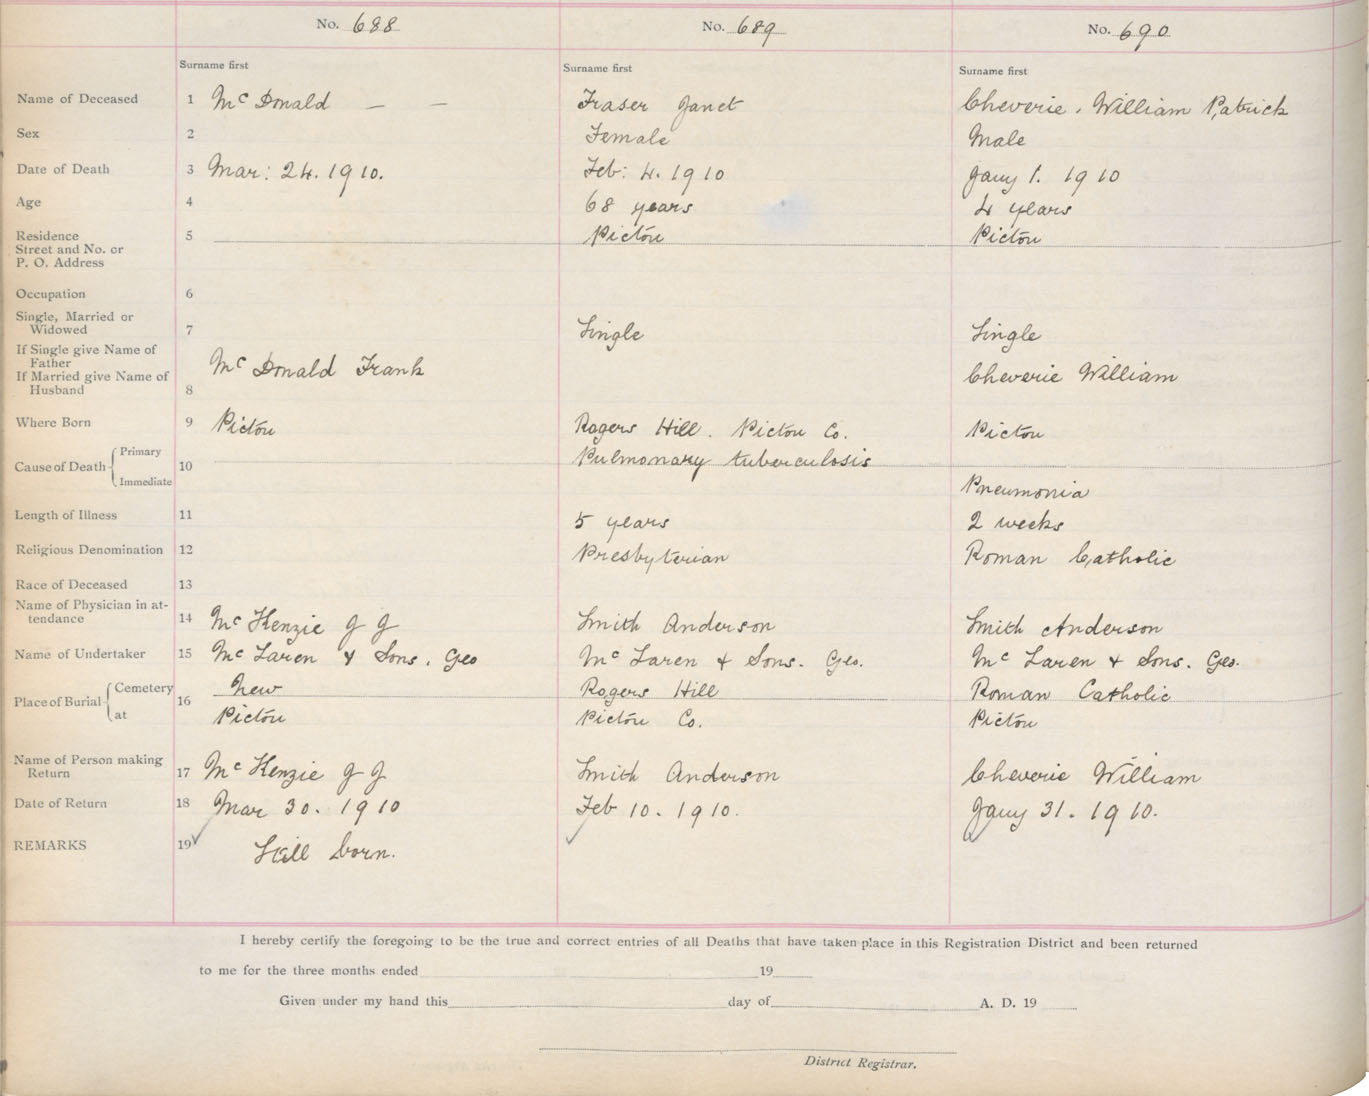 No. 688 No. 689 No. 690
Surname first Surname first Surname first
Name of Deceased 1 McDonald — — Fraser Janet Cheverie, William Patrick
Sex 2 Female Male
Date of Death 3 Mar: 24. 1910. Feb: 4. 1910 Jany 1. 1910
Age 4 68 years 4 years
Residence 5 Pictou Pictou
Street and No. or
P. O. Address
Occupation 6
Single, Married or
Widowed 7 Single Single
If Single give Name of
Father McDonald Frank Cheverie William
If Married give Name of
Husband 8
Where Born 9 Pictou Rogers Hill. Pictou Co. Pictou
Cause of Death Primary 10 Pulmonary tuberculosis
Immediate Pneumonia
Length of Illness 11 5 years 2 weeks
Religious Denomination 12 Presbyterian Roman Catholic
Race of Deceased 13
Name of Physician in at-
tendance 14 McKenzie J J Smith Anderson Smith Anderson
Name of Undertaker 15 McLaren & Sons. Geo McLaren & Sons. Geo. McLaren & Sons. Geo.
Place of Burial Cemetery 16 New Rogers Hill Roman Catholic
at Pictou Pictou Co. Pictou
Name of Person making
Return 17 McKenzie J J Smith Anderson Cheverie William
Date of Return 18 Mar 30. 1910 Feb 10. 1910. Jany 31. 1910.
REMARKS 19 Still born.
I hereby certify the foregoing to be the true and correct entries of all Deaths that have taken place in this Registration District and been returned
to me for the three months ended 19
Given under my hand this day of A. D. 19
District Registrar.